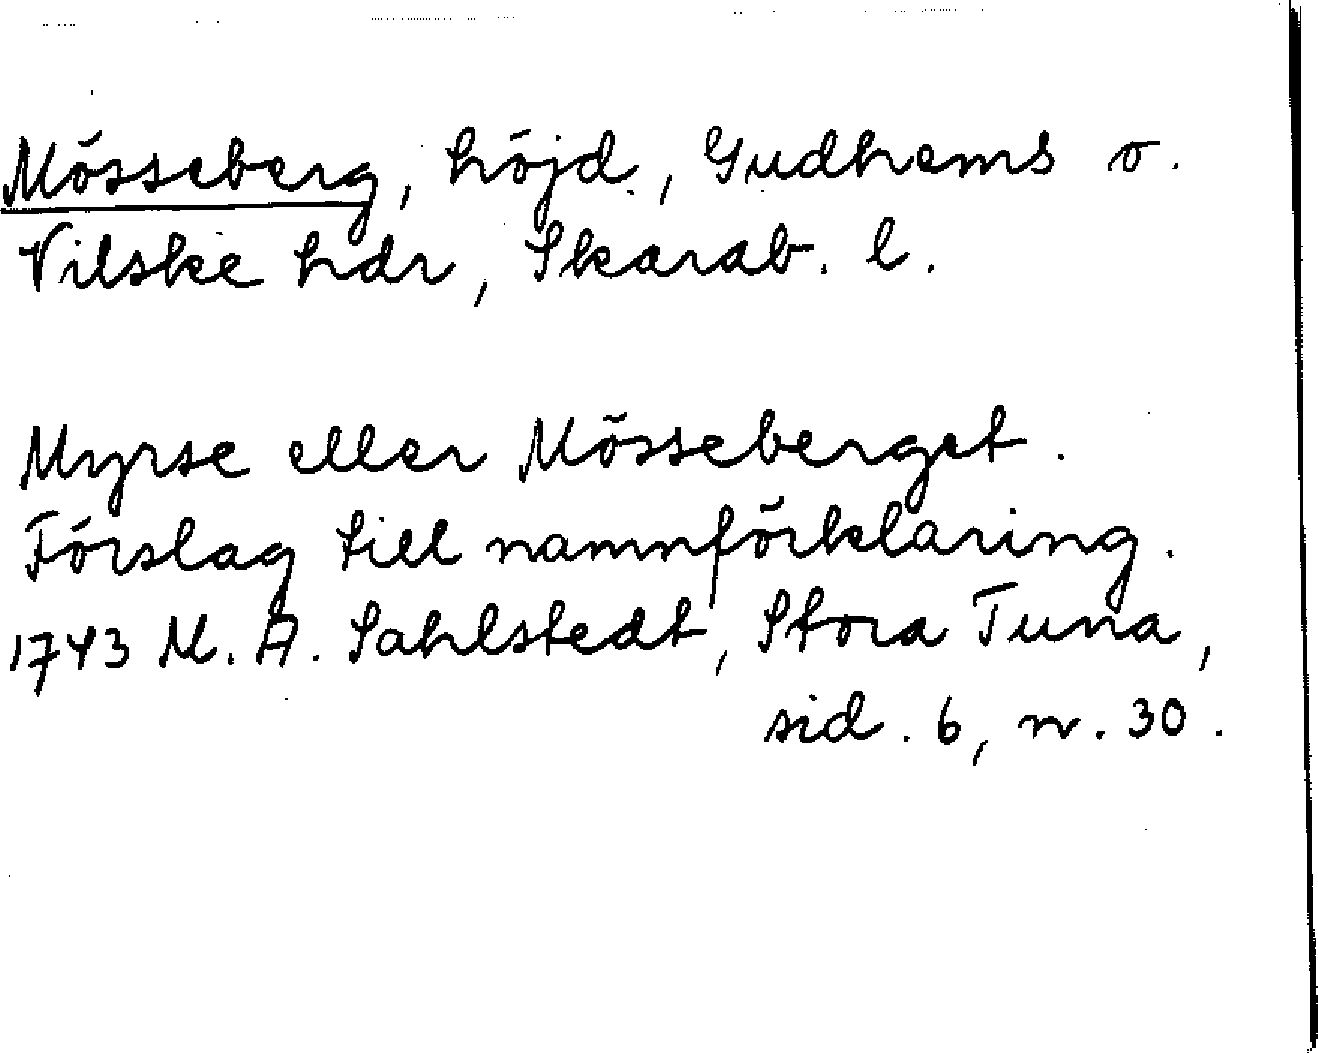 Mösseberg, höjd, Gudhems o.
Vilske hdr, Skarab. l.
Myrse eller Mösseberget.
Förslag till namnförklaring.
1743 M. A. Sahlstedt, Stora Tuna,
sid. 6, n. 30.